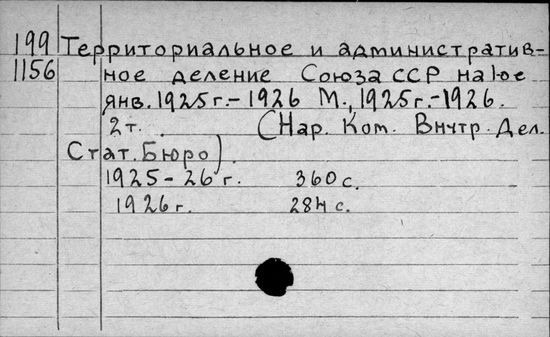 199 Территориальное и административ-
1156 ное деление Союза ССР на 1ое
янв. 1925г.-1926 М., 1925г.-1926.
2т. (Нар. Ком. Внутр. Дел.
Стат. Бюро).
1925-26 г. 360 с.
1926 г. 284 с.